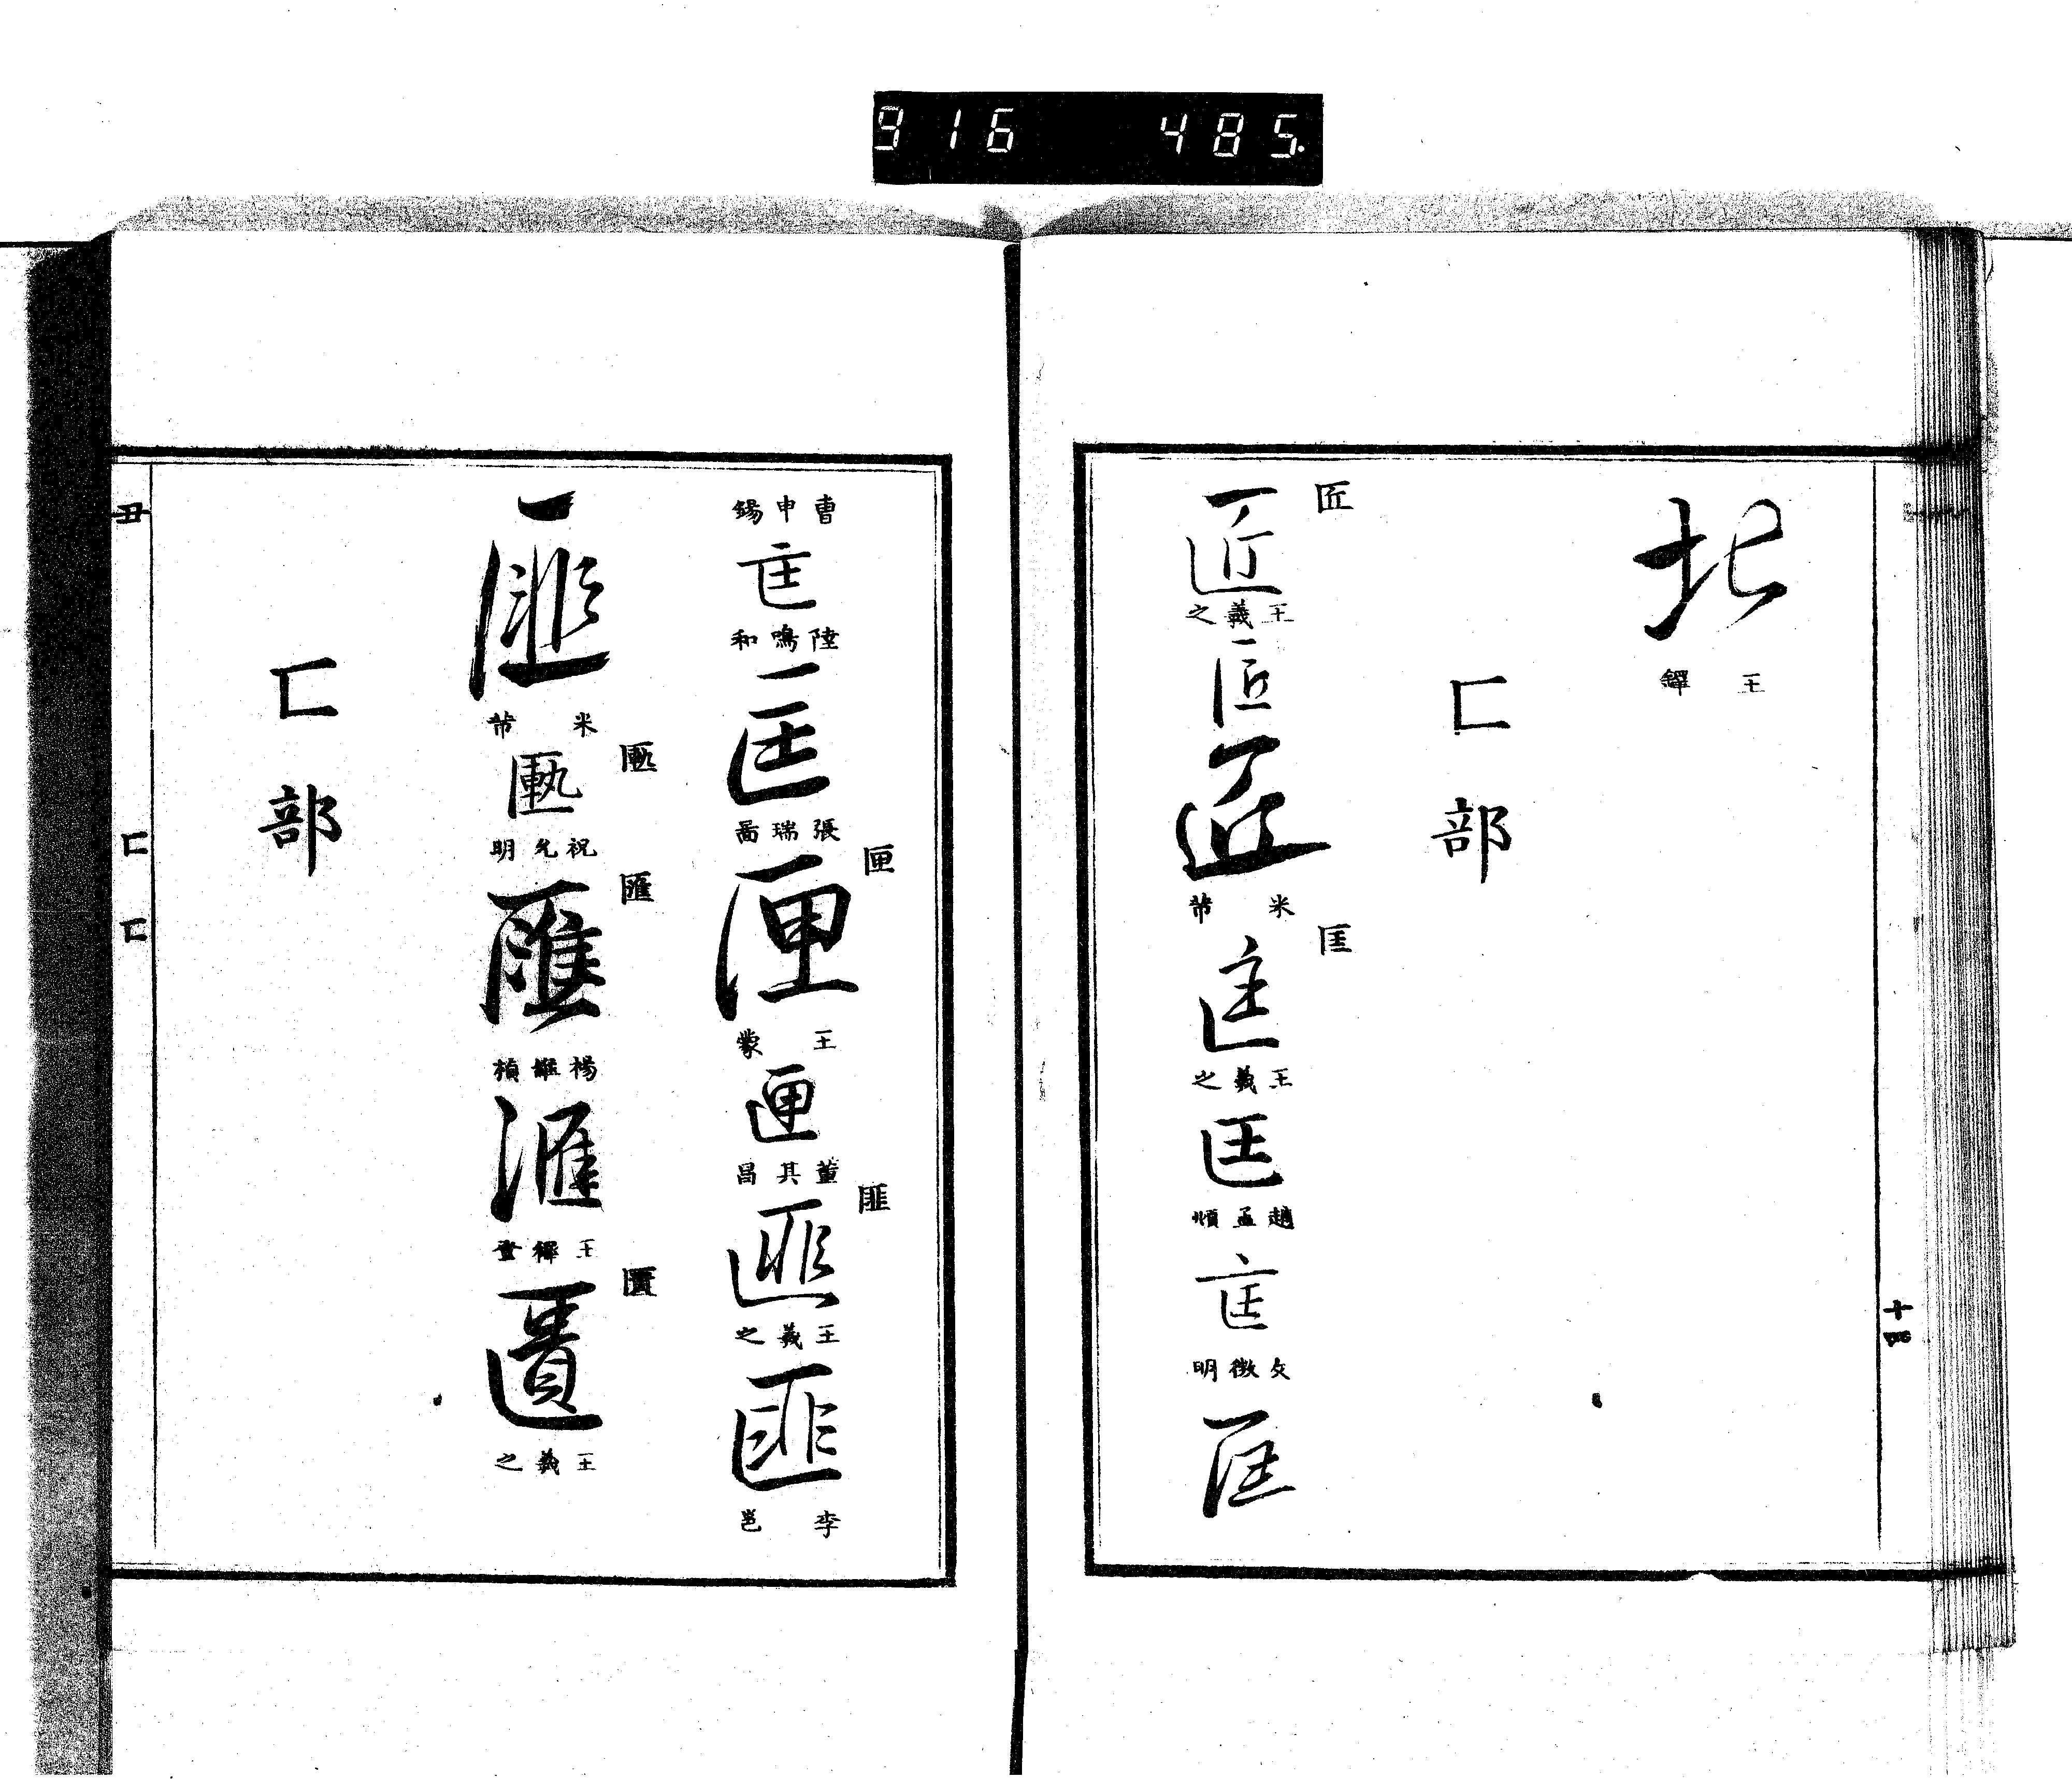 916 485.
北
王鐸
匚部
匠
匠
王羲之
匠
匠
米芾
匡
匡
王羲之
匡
趙孟頫
匡
文徵明
匡
十四
曹申錫
匡
陸鳴和
匡
張瑞啚
匣
匣
王蒙
匣
董其昌
匪
匪
王羲之
匪
李邕
匪
米芾
祝允明
匯
匯
楊維楨
滙
王穉登
匱
匱
王羲之
匸部
丑 匚 匸